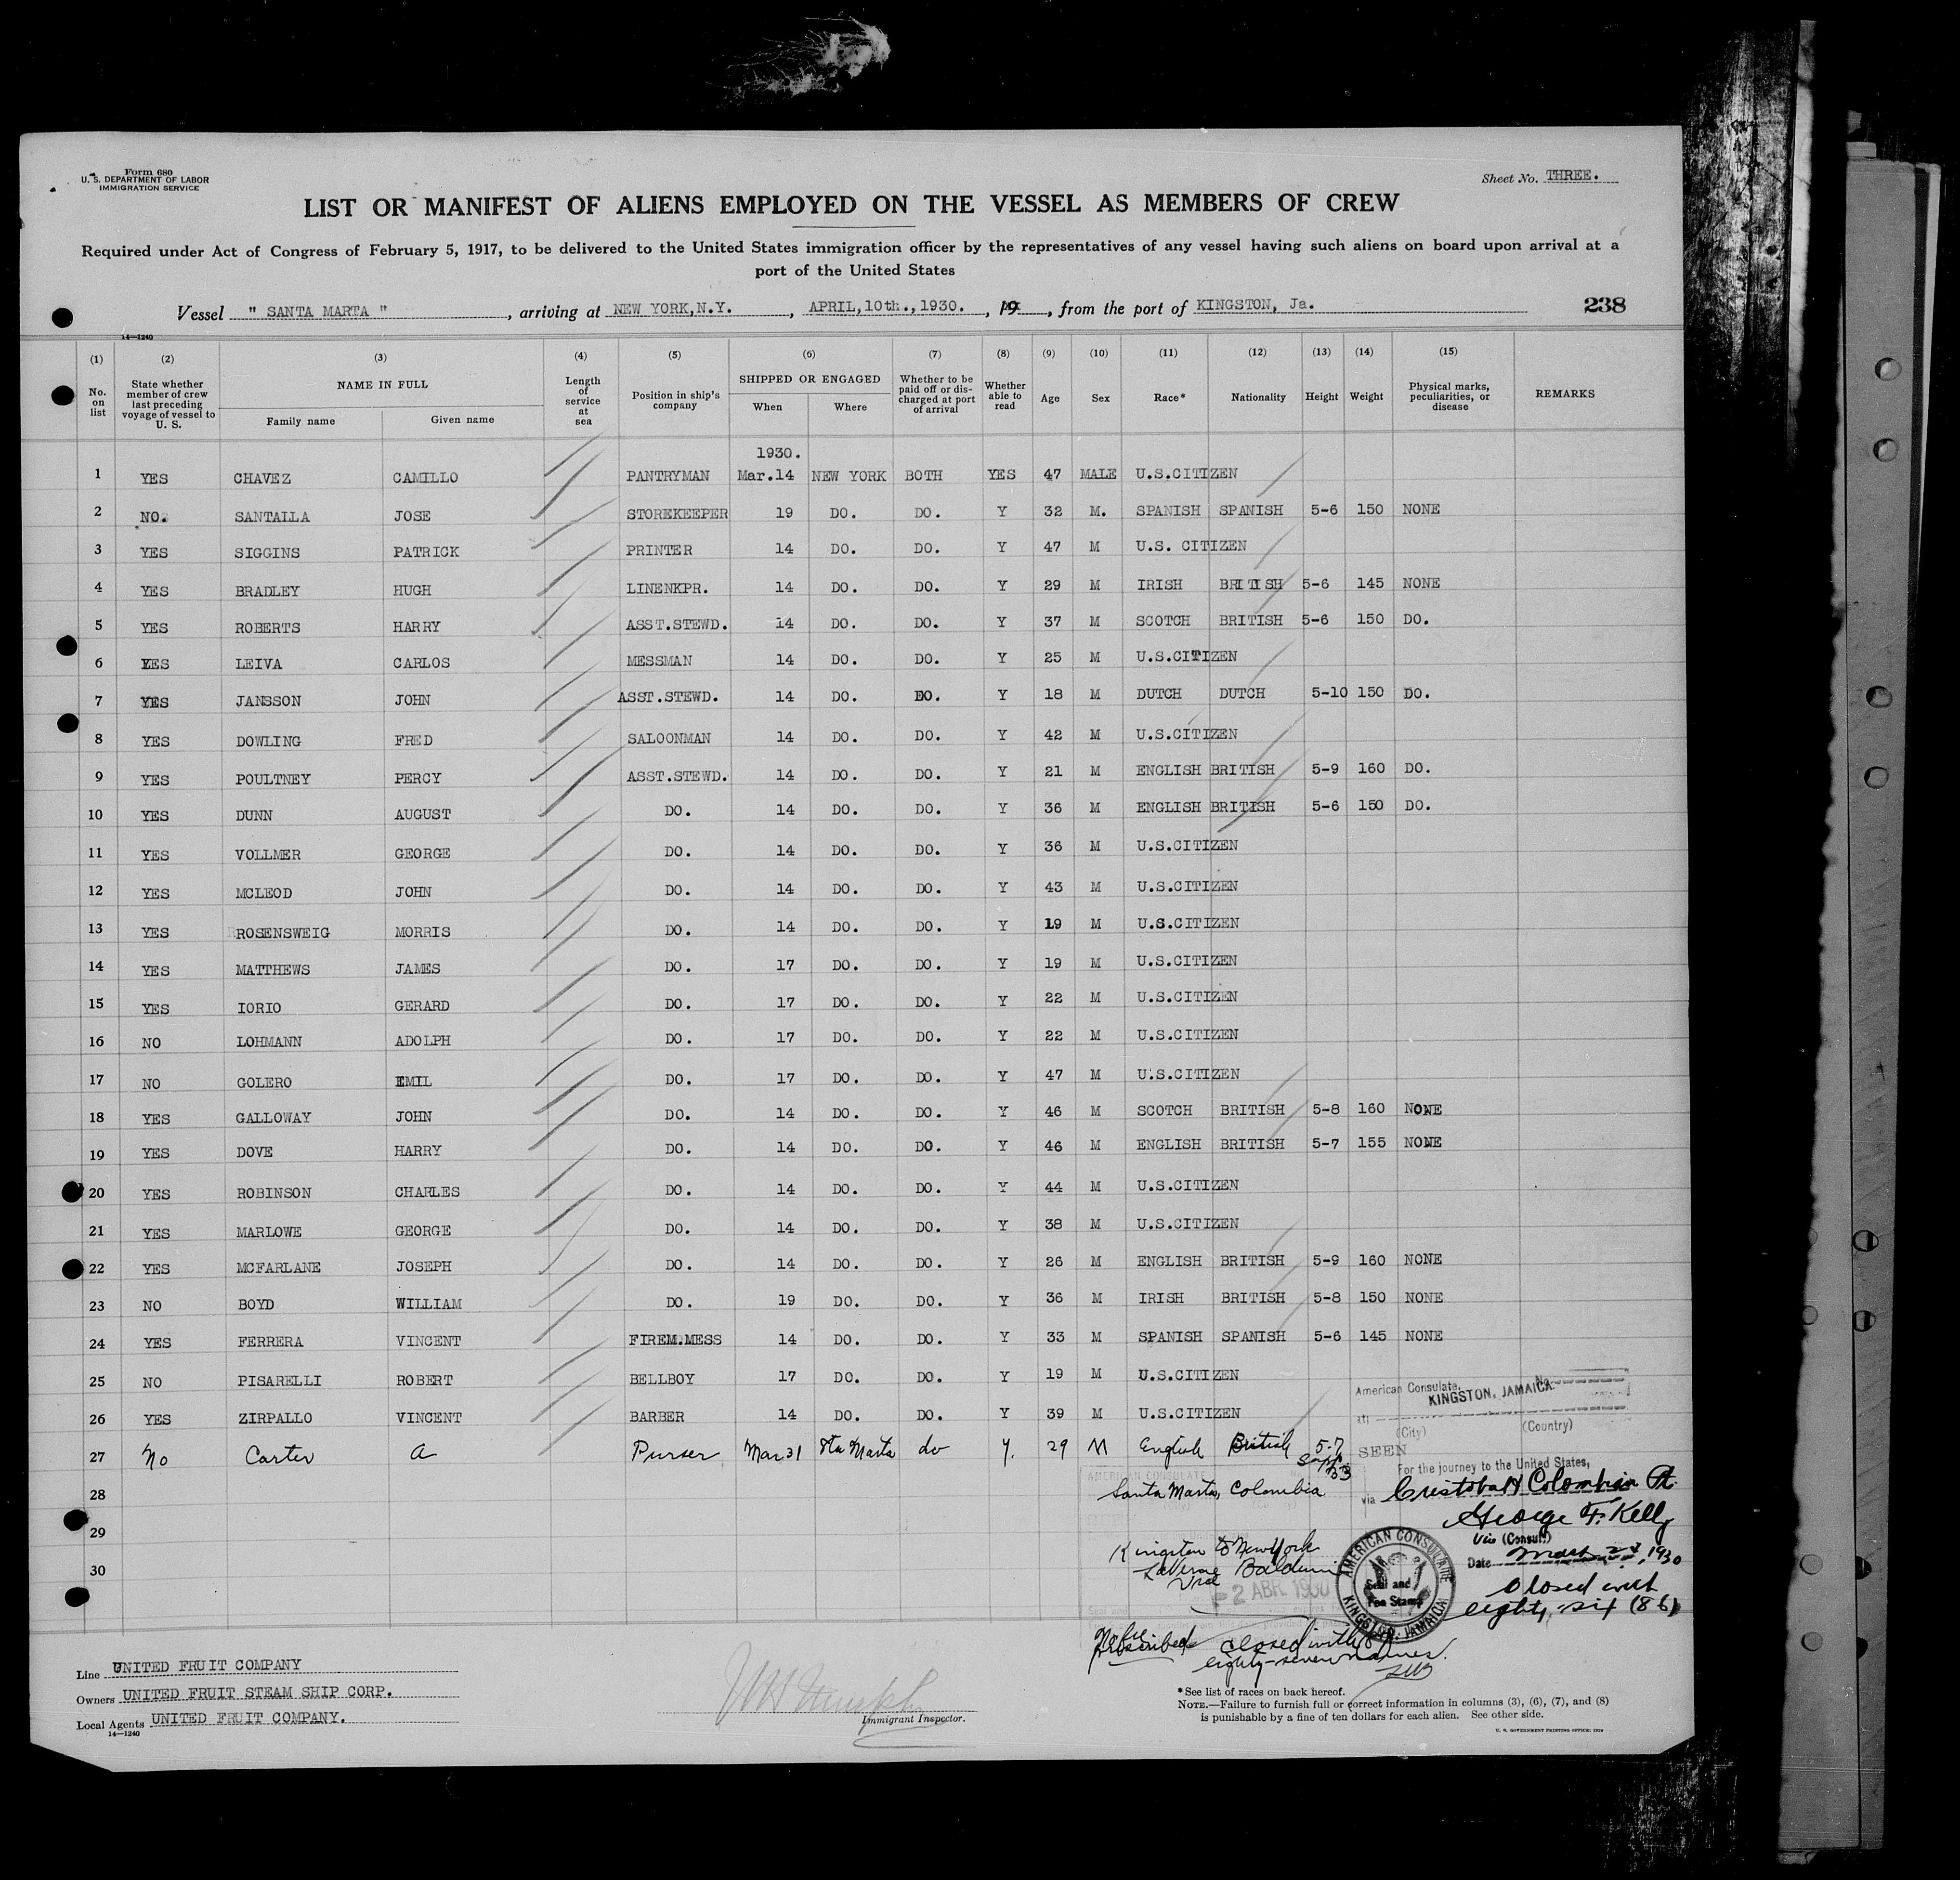 Form 680
U. S. DEPARTMENT OF LABOR
IMMIGRATION SERVICE
Sheet No. THREE.
LIST OR MANIFEST OF ALIENS EMPLOYED ON THE VESSEL AS MEMBERS OF CREW
Required under Act of Congress of February 5, 1917, to be delivered to the United States immigration officer by the representatives of any vessel having such aliens on board upon arrival at a
port of the United States
Vessel " SANTA MARTA ", arriving at NEW YORK,N.Y. , APRIL,10th.,1930. , 19 , from the port of KINGSTON, Ja. 238
14—1240
(1) (2) (3) (4) (5) (6) (7) (8) (9) (10) (11) (12) (13) (14) (15)
No. on list State whether member of crew last preceding voyage of vessel to U. S. NAME IN FULL Family name Given name Length of service at sea Position in ship's company SHIPPED OR ENGAGED When Where Whether to be paid off or discharged at port of arrival Whether able to read Age Sex Race* Nationality Height Weight Physical marks, peculiarities, or disease REMARKS
1930.
1 YES CHAVEZ CAMILLO PANTRYMAN Mar.14 NEW YORK BOTH YES 47 MALE U.S.CITIZEN
2 NO. SANTALLA JOSE STOREKEEPER 19 DO. DO. Y 32 M. SPANISH SPANISH 5-6 150 NONE
3 YES SIGGINS PATRICK PRINTER 14 DO. DO. Y 47 M U.S. CITIZEN
4 YES BRADLEY HUGH LINENKPR. 14 DO. DO. Y 29 M IRISH BRITISH 5-6 145 NONE
5 YES ROBERTS HARRY ASST.STEWD. 14 DO. DO. Y 37 M SCOTCH BRITISH 5-6 150 DO.
6 YES LEIVA CARLOS MESSMAN 14 DO. DO. Y 25 M U.S.CITIZEN
7 YES JANSSON JOHN ASST.STEWD. 14 DO. DO. Y 18 M DUTCH DUTCH 5-10 150 DO.
8 YES DOWLING FRED SALOONMAN 14 DO. DO. Y 42 M U.S.CITIZEN
9 YES POULTNEY PERCY ASST.STEWD. 14 DO. DO. Y 21 M ENGLISH BRITISH 5-9 160 DO.
10 YES DUNN AUGUST DO. 14 DO. DO. Y 36 M ENGLISH BRITISH 5-6 150 DO.
11 YES VOLLMER GEORGE DO. 14 DO. DO. Y 36 M U.S.CITIZEN
12 YES MCLEOD JOHN DO. 14 DO. DO. Y 43 M U.S.CITIZEN
13 YES ROSENSWEIG MORRIS DO. 14 DO. DO. Y 19 M U.S.CITIZEN
14 YES MATTHEWS JAMES DO. 17 DO. DO. Y 19 M U.S.CITIZEN
15 YES IORIO GERARD DO. 17 DO. DO. Y 22 M U.S.CITIZEN
16 NO LOHMANN ADOLPH DO. 17 DO. DO. Y 22 M U.S.CITIZEN
17 NO GOLERO EMIL DO. 17 DO. DO. Y 47 M U.S.CITIZEN
18 YES GALLOWAY JOHN DO. 14 DO. DO. Y 46 M SCOTCH BRITISH 5-8 160 NONE
19 YES DOVE HARRY DO. 14 DO. DO. Y 46 M ENGLISH BRITISH 5-7 155 NONE
20 YES ROBINSON CHARLES DO. 14 DO. DO. Y 44 M U.S.CITIZEN
21 YES MARLOWE GEORGE DO. 14 DO. DO. Y 38 M U.S.CITIZEN
22 YES MCFARLANE JOSEPH DO. 14 DO. DO. Y 26 M ENGLISH BRITISH 5-9 160 NONE
23 NO BOYD WILLIAM DO. 19 DO. DO. Y 36 M IRISH BRITISH 5-8 150 NONE
24 YES FERRERA VINCENT FIREM.MESS 14 DO. DO. Y 33 M SPANISH SPANISH 5-6 145 NONE
25 NO PISARELLI ROBERT BELLBOY 17 DO. DO. Y 19 M U.S.CITIZEN
26 YES ZIRPALLO VINCENT BARBER 14 DO. DO. Y 39 M U.S.CITIZEN
27 No Carter A Purser Mar 31 Sta Marta do Y. 29 M English British 5-7
28
29
30
American Consulate, No.
at KINGSTON, JAMAICA
(City) (Country)
SEEN
For the journey to the United States,
via Cristobal Colombia
George F. Kelly
Vice (Consul)
Date 1930
Closed with
eighty, six (86)
AMERICAN CONSULATE
Santa Marta, Colombia
Kingston to New York
LaVerne Baldwin
Vice
2 ABR 1930
AMERICAN CONSULATE
Seal and
Fee Stamp
KINGSTON, JAMAICA
No fee
prescribed
closed with 87
eighty-seven names.
Line UNITED FRUIT COMPANY
Owners UNITED FRUIT STEAM SHIP CORP.
Local Agents UNITED FRUIT COMPANY.
14—1240
Immigrant Inspector.
*See list of races on back hereof.
NOTE.—Failure to furnish full or correct information in columns (3), (6), (7), and (8)
is punishable by a fine of ten dollars for each alien. See other side.
U. S. GOVERNMENT PRINTING OFFICE: 1929